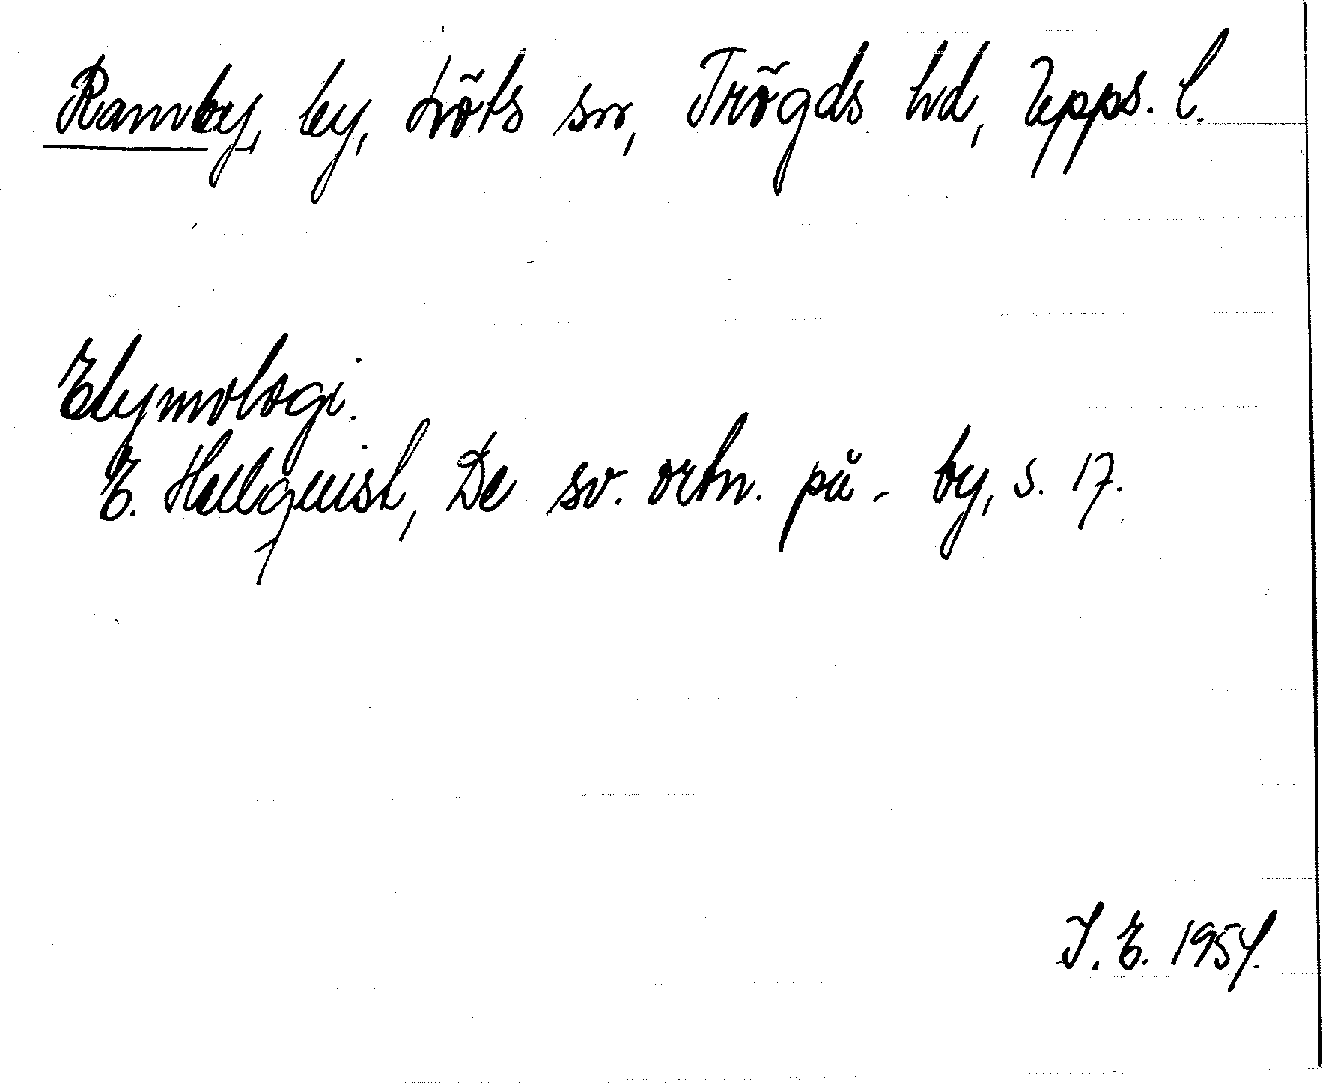 Ramby, by, Löts sn, Trögds hd, Upps. l.
Etymologi.
E. Hellquist, De sv. ortn. på - by, s. 17.
I. E. 1954.